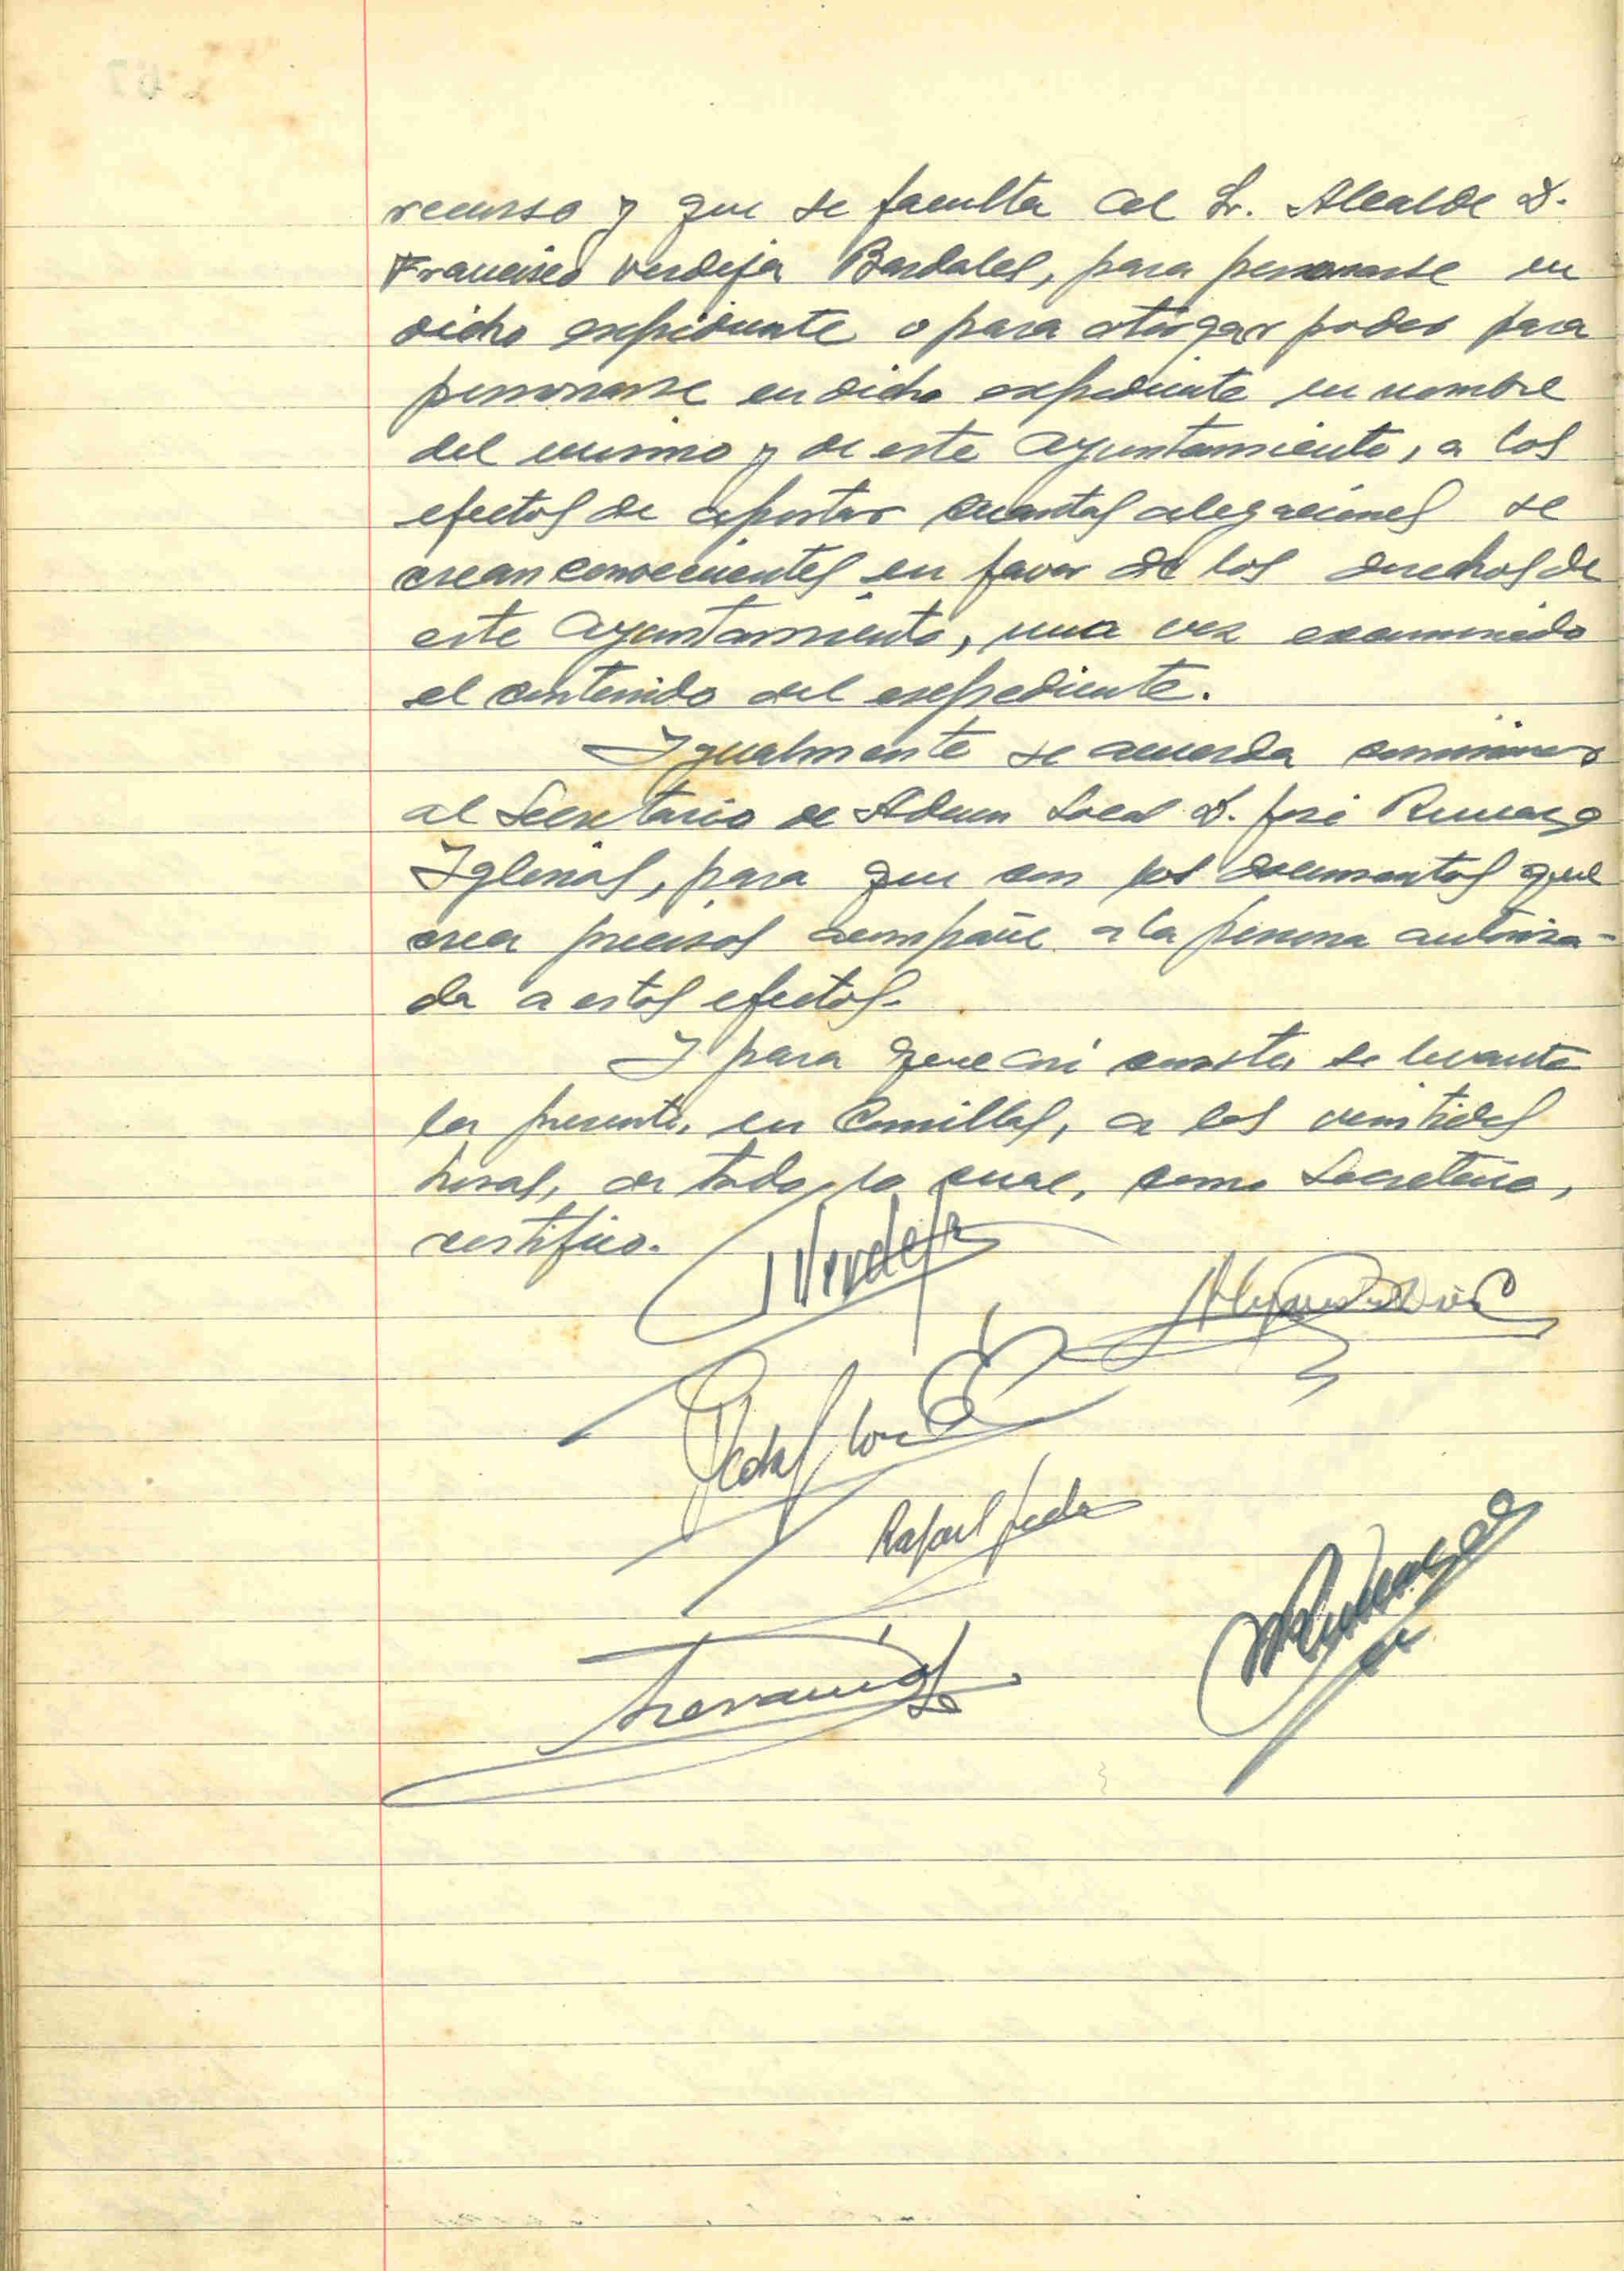 recurso y que se faculta al Sr. Alcalde D.
Francisco Verdeja Bardales, para personarse en
dicho expediente o para otorgar poder para
personarse en dicho expediente en nombre
del mismo y de este Ayuntamiento, a los
efectos de aportar cuantas alegaciones se
crean convenientes en favor de los derechos de
este Ayuntamiento, una vez examinado
el contenido del expediente.
Igualmente se acuerda comisionar
al Secretario de Admon Local D. José Rumazo
Iglesias, para que con los documentos que
crea precisos acompañe a la persona autoriza-
da a estos efectos.
Y para que así conste se levanta
la presente, en Comillas, a las veintidos
horas, de todo lo cual, como Secretario,
certifico.
Verdeja
Rafael